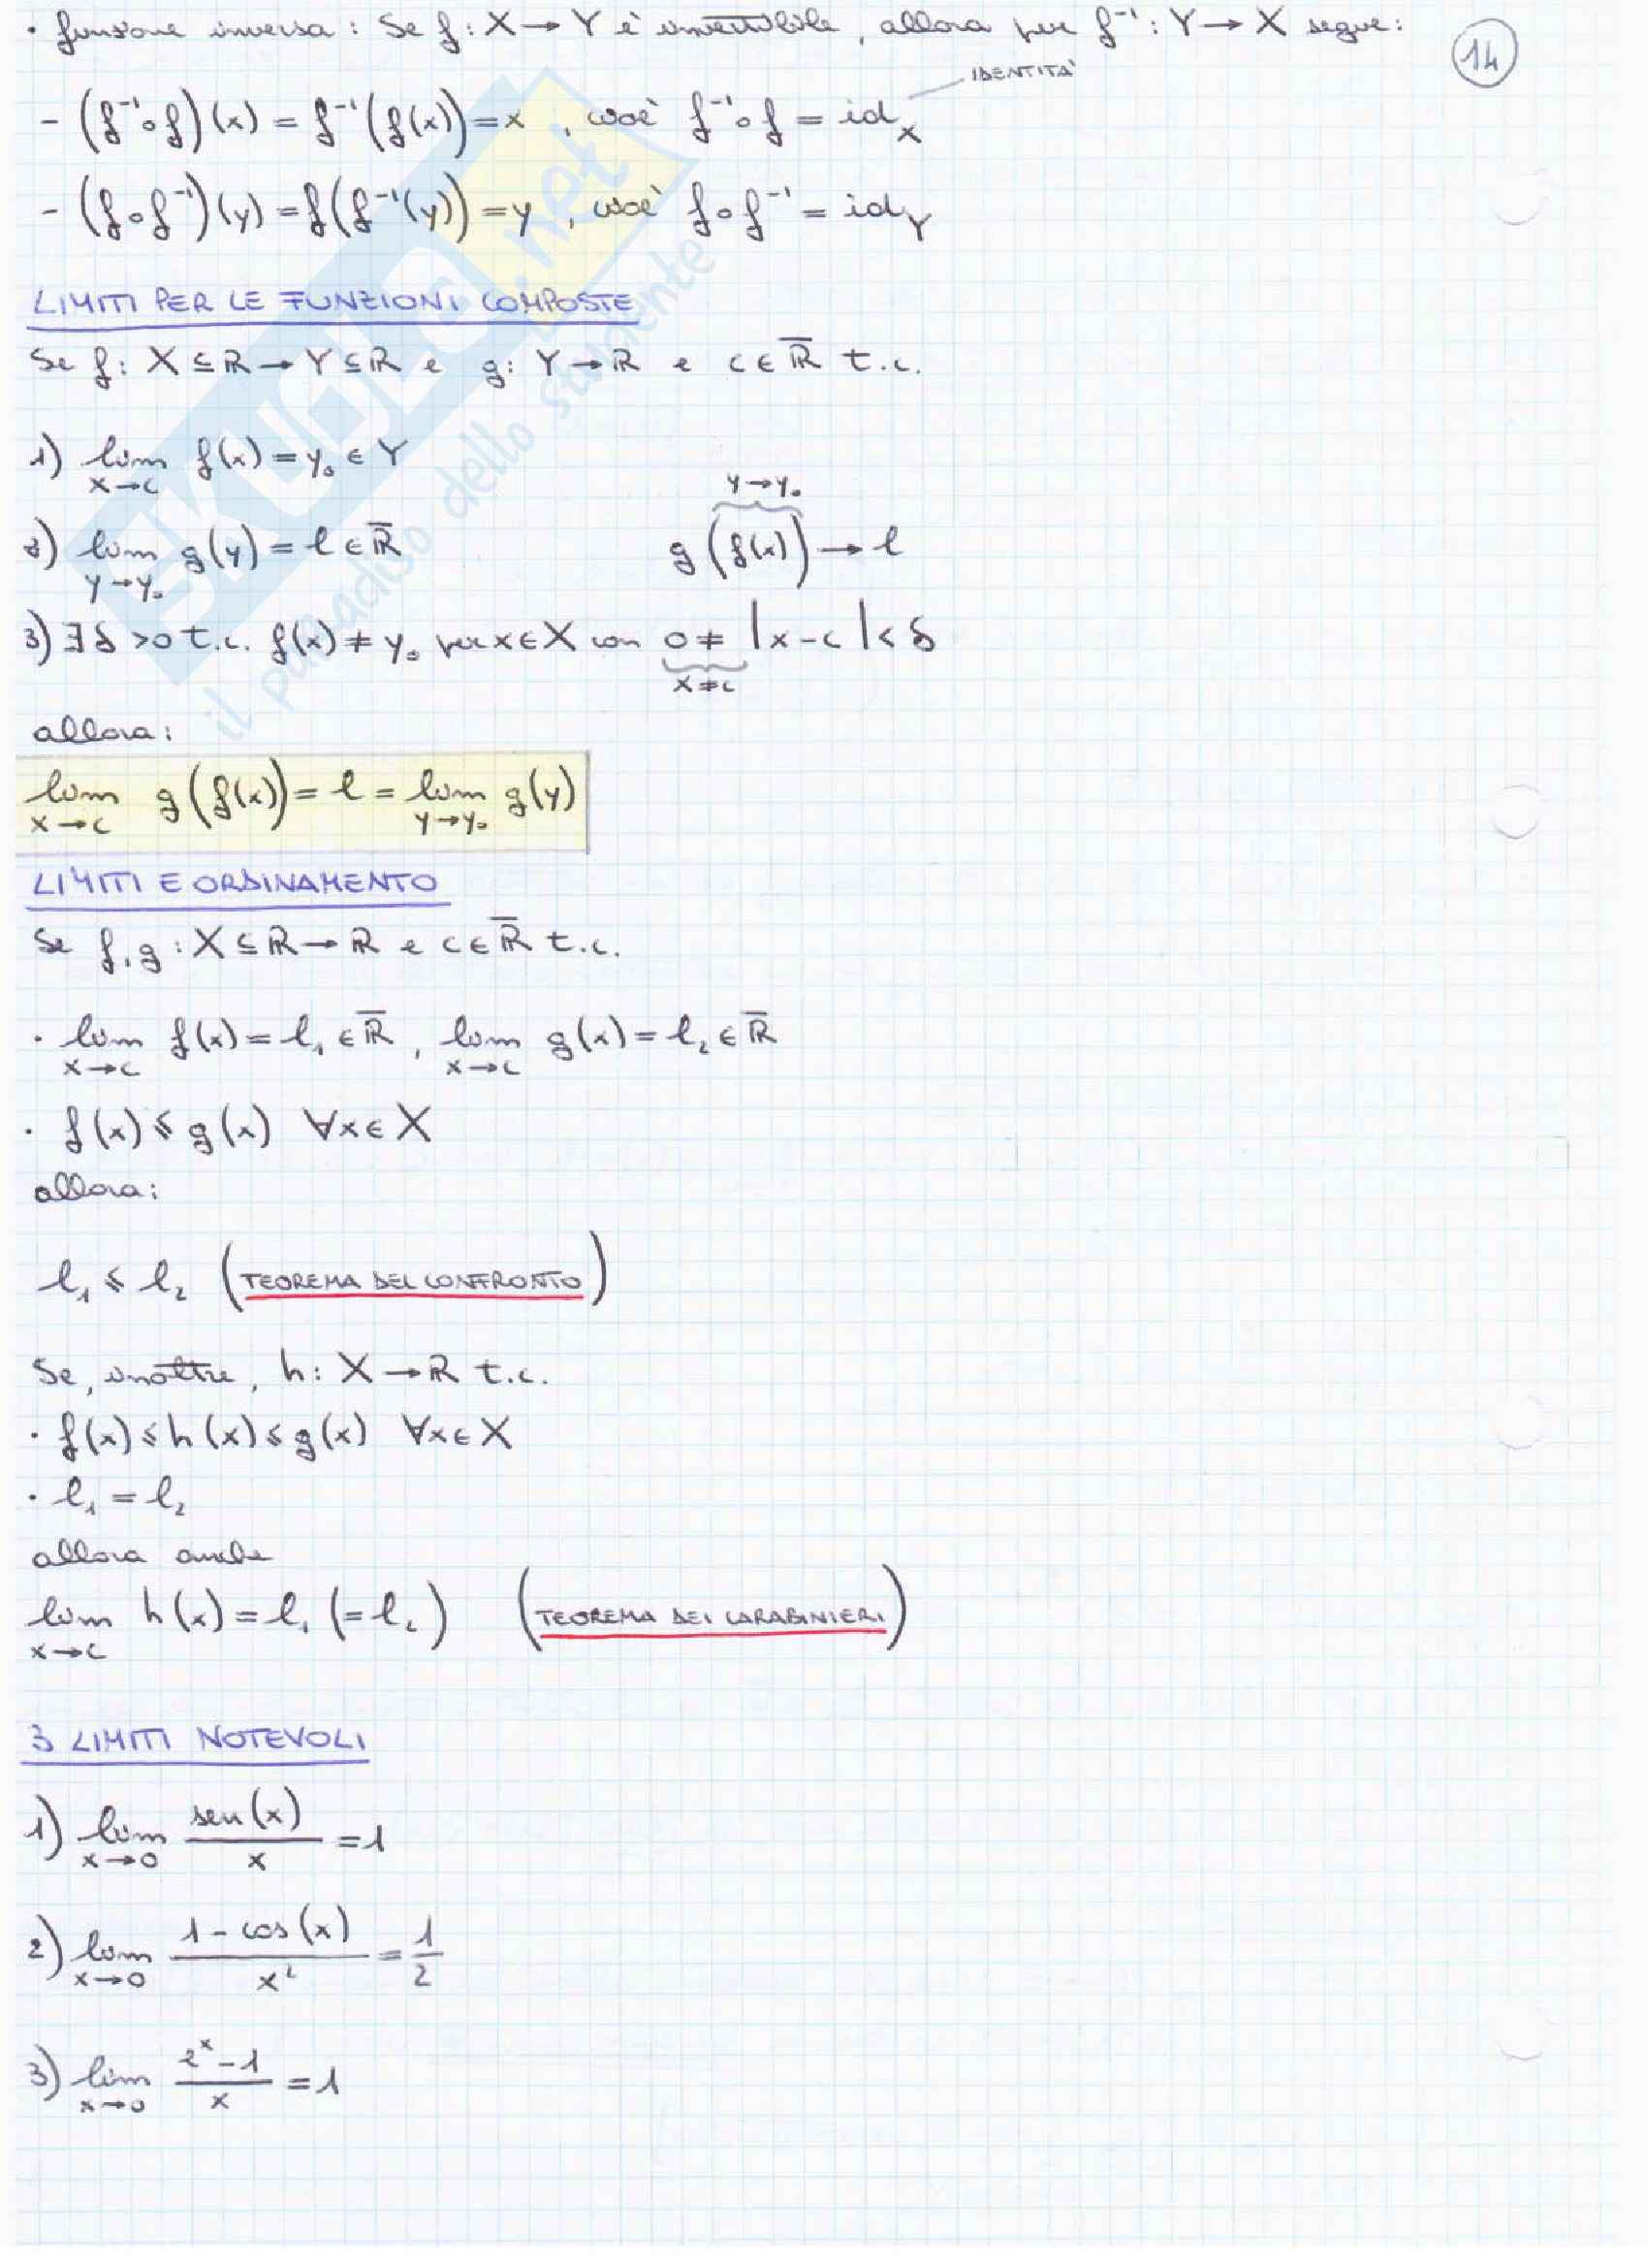 · funzione inversa : Se f : X → Y è invertibile, allora per f⁻¹ : Y → X segue:
14
IDENTITA'
- (f⁻¹∘f)(x) = f⁻¹(f(x)) = x , cioè f⁻¹∘f = id_X
- (f∘f⁻¹)(y) = f(f⁻¹(y)) = y , cioè f∘f⁻¹ = id_Y
LIMITI PER LE FUNZIONI COMPOSTE
Se f: X ⊆ ℝ → Y ⊆ ℝ e g: Y → ℝ e c ∈ ℝ̅ t.c.
1) lim_{x→c} f(x) = y₀ ∈ Y
y→y₀
2) lim_{y→y₀} g(y) = l ∈ ℝ̅ g(f(x)) → l
3) ∃ δ > 0 t.c. f(x) ≠ y₀ per x ∈ X con 0 ≠ |x - c| < δ
x≠c
allora:
lim_{x→c} g(f(x)) = l = lim_{y→y₀} g(y)
LIMITI E ORDINAMENTO
Se f, g : X ⊆ ℝ → ℝ e c ∈ ℝ̅ t.c.
· lim_{x→c} f(x) = l₁ ∈ ℝ̅ , lim_{x→c} g(x) = l₂ ∈ ℝ̅
· f(x) ⩽ g(x) ∀x ∈ X
allora:
l₁ ⩽ l₂ (TEOREMA DEL CONFRONTO)
Se, inoltre, h : X → ℝ t.c.
· f(x) ⩽ h(x) ⩽ g(x) ∀x ∈ X
· l₁ = l₂
allora anche
lim_{x→c} h(x) = l₁ (= l₂) (TEOREMA DEI CARABINIERI)
3 LIMITI NOTEVOLI
1) lim_{x→0} sen(x)/x = 1
2) lim_{x→0} (1 - cos(x))/x² = 1/2
3) lim_{x→0} (eˣ - 1)/x = 1
SKUOLA.net
il paradiso dello studente